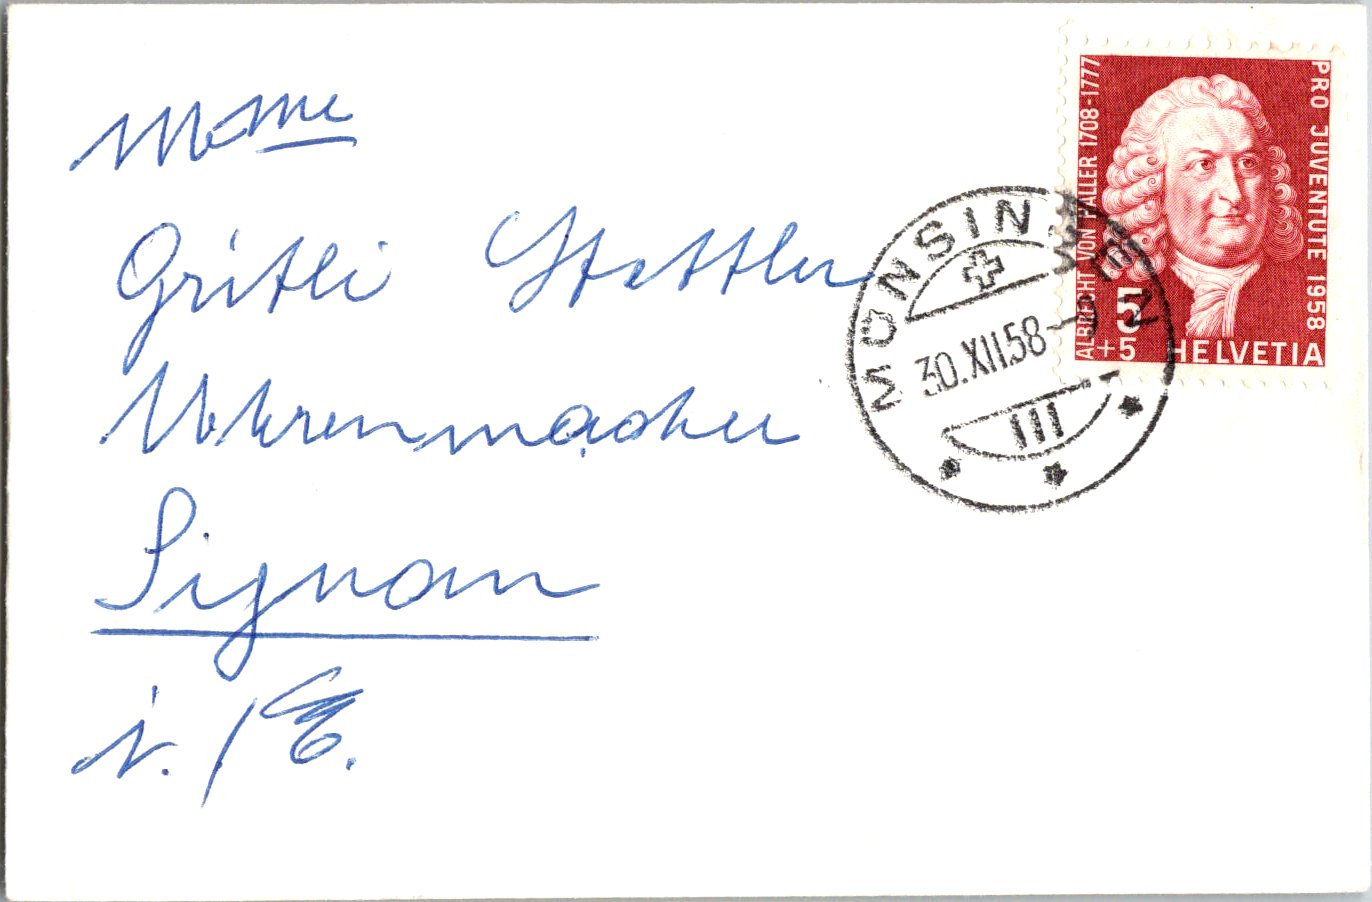 Mme
Gritli Stettler
Uhrenmacher
Signau
i./E.
MÜNSINGEN
30.XII.58
III
ALBRECHT VON HALLER 1708-1777
PRO JUVENTUTE 1958
5
+5
HELVETIA